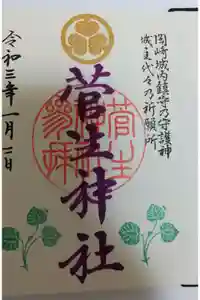 岡崎城内鎮守乃守護神
城主代々乃祈願所
菅生神社
令和三年一月一日